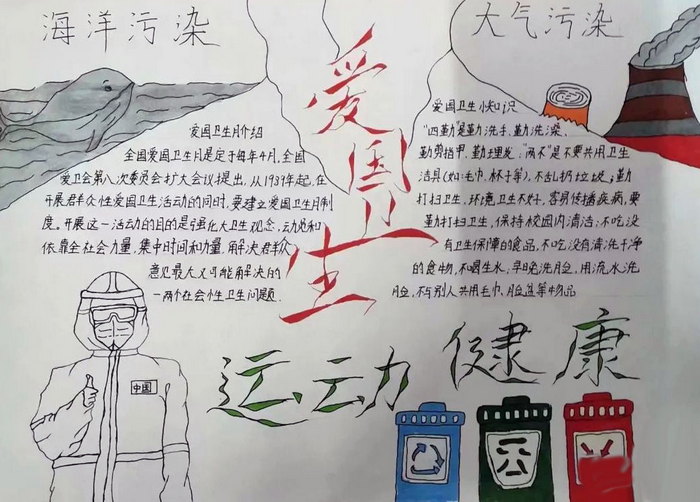 海洋污染
大气污染
爱国卫生
爱国卫生月介绍
全国爱国卫生月是定于每年4月,全国
爱卫会第八次委员会扩大会议提出,从1939年起,在
开展群众性爱国卫生活动的同时,要建立爱国卫生月制
度。开展这一活动的目的是强化大卫生观念,动员和
依靠全社会力量,集中时间和力量,解决君众
意见最大又可能解决的
一两个社会性卫生问题.
爱国卫生小知识
"四勤"是勤洗手、勤洗澡、
勤剪指甲、勤理发;"两不"是不要共用卫生
洁具(如毛巾、杯子等),不乱扔垃圾;勤
打扫卫生,环境卫生不好,容易传播疾病,要
勤打扫卫生,保持校园内清洁;不吃没
有卫生保障的食品,不吃没有清洗干净
的食物,不喝生水,早晚洗脸,用流水洗
脸,不与别人共用毛巾、脸盆等物品
中国
运动健康